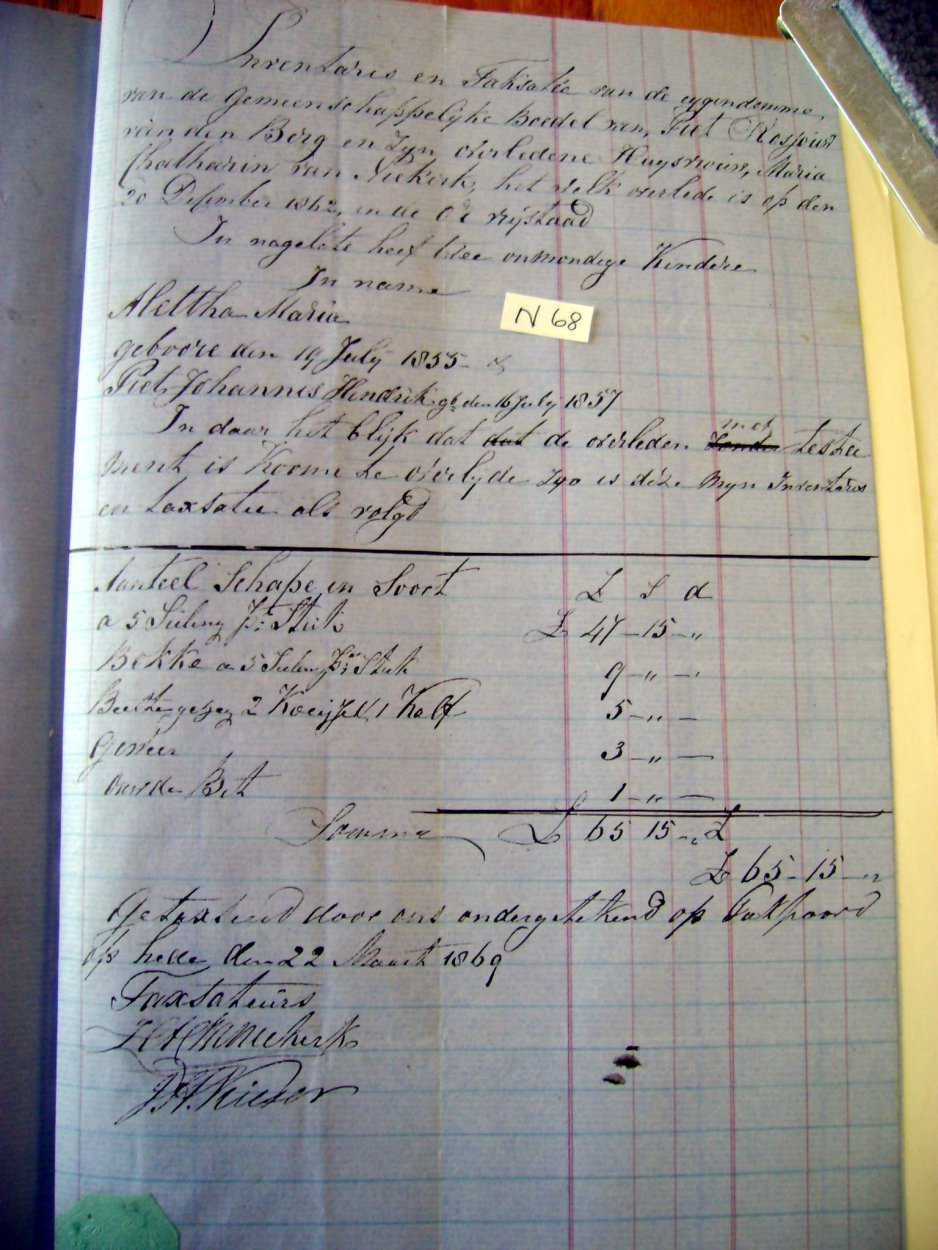 Inventaris en Taksatie van de eygendomme,
van de Gemeenschappelyke Boedel van, Piet
van den Berg en Zyn overledene Huysvrouw, Maria
Chatharin van Niekerk, het welk overlede is op den
20 Desember 1862, in de O. vrijstaad
In nagelate heeft twee onmondige Kindere
In name
Alettha Maria
geboore den 19 July 1855 - &
Piet Johannes Hendrik gb den 16 July 1857
In daar het blijk dat dat de overleden zonder met testa
ment is Koome te overlyde Zyo is deze Myn Inventaris
en taxsatie als volgd
N 68
Aanteel Schape in Soort £ S d
a 5 Sieling Pr Stuk £ 47 - 15 - "
Bokke a 5 Pr Stuk 9 - " -
2 1 Kalf 5 - " -
Geweer 3 - " -
ouwde Bet 1 - " -
Somma £ 65 15 - " £
£ 65 - 15 - "
Getaxseerd door ons ondergetekend op
op hede den 22 Maart 1869
Taxsateurs
van Niekerk